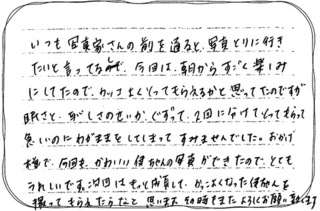 いつも写真家さんの前を通ると、写真とりに行き
たいと言ってる 今回は、朝からすごく楽しみ
にしてたので、カッコよくとってもらえるかと思ってたのですが
眠さと、 さのせいか、ぐずって、2回に分けてとってもらって
急いのにわがままをしてしまってすみませんでした。おかげ
様で、今回も、かわいい の写真ができたので、とても
うれしいです。次回はもっと かっこよくなった を
撮ってもらえたらなと思います。その時もまたよろしくお願い致します